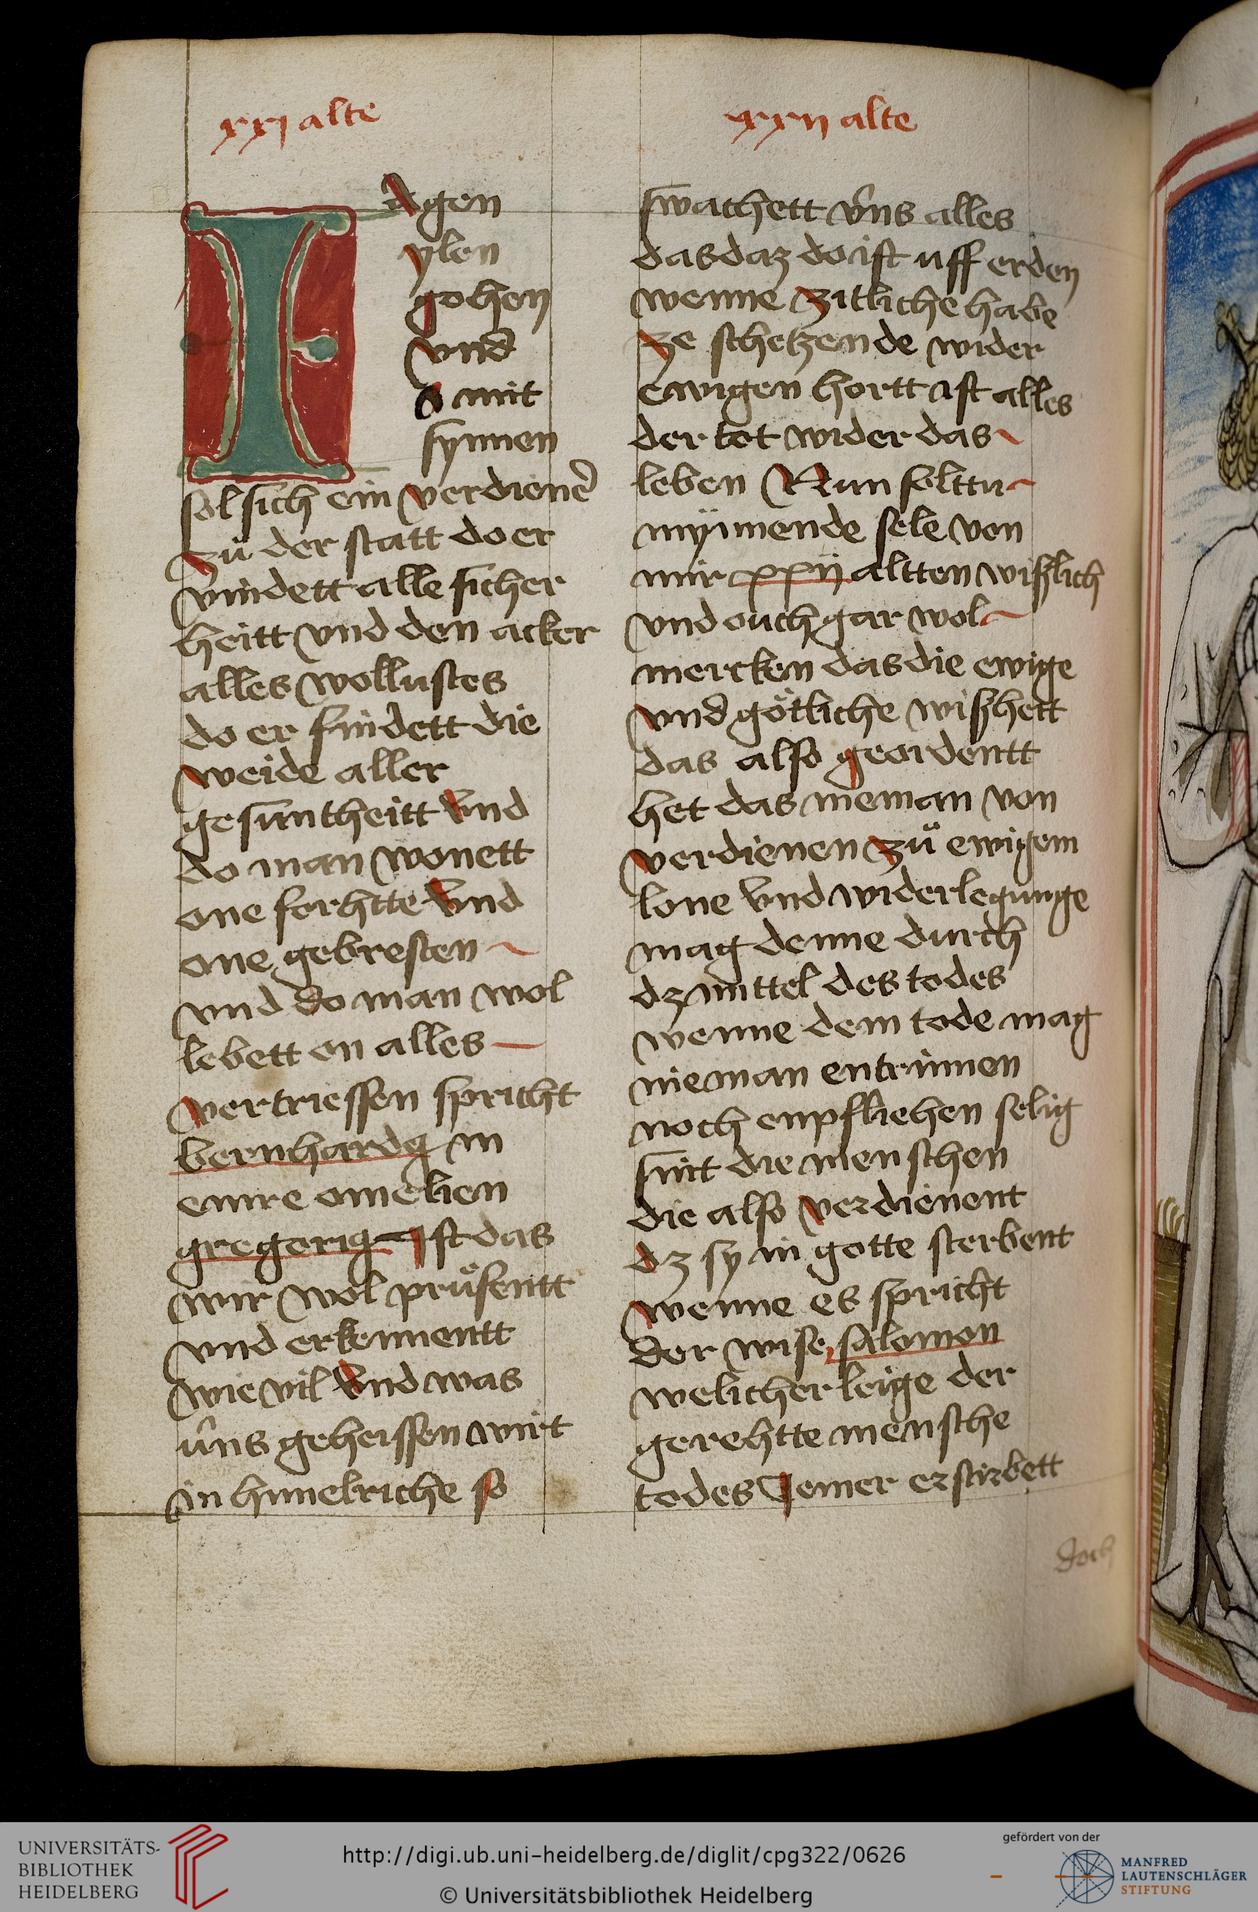 xxj alte
IAgen
ylen
gohen
vnd
mit
synnen
sol sich ein verdiener
zů der statt do er
vindett alle sicher
heitt vnd den acker
alles wollustes
do er findett die
weide aller
gesuntheitt vnd
do man wonett
one forhtte vnd
one gebresten
vnd do man wol
lebett on alles
vertriessen spricht
bernhardꝯ in
einre omelien
gregoriꝯ Ist das
wir wol prüfentt
vnd erkennentt
wie vil vnd was
vns geheissen wirt
in himelriche so
xxij alte
swachett vns alles
das daz do ist uff erden
wenne zitliche habe
ze schetzende wider
ewigen hortt ist alles
der tot wider das
leben Nun solttu
mynnende sele von
mir xxij altten wißlich
vnd ouch gar wol
mercken das die ewige
vnd götliche wißhett
das also geordentt
het das nieman von
verdienen zů ewigem
lone vnd widerlegunge
mag denne durch
dz mittel des todes
wenne dem tode mag
nieman entrinnen
noch enpfliehen selig
sint die menschen
die also verdienent
dz sy in gotte sterbent
wenne es spricht
der wise salomon
welicher leige der
gerehtte mensche
todes Jemer erstirbett
doch
UNIVERSITÄTS-
BIBLIOTHEK
HEIDELBERG
http://digi.ub.uni-heidelberg.de/diglit/cpg322/0626
© Universitätsbibliothek Heidelberg
gefördert von der
MANFRED
LAUTENSCHLÄGER
STIFTUNG